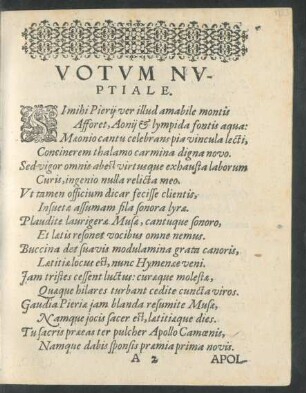 VOTVM NV-
PTIALE.
SI mihi Pierij ver illud amabile montis
Afforet, Aonij & lympida fontis aqua:
Mæonio cantu celebrans pia vincula lecti,
Continerem thalamo carmina digna novo.
Sed vigor omnis abest virtusque exhausta laborum
Curis, ingenio nulla relicta meo.
Vt tamen officium dicar fecisse clientis,
Insueta assumam fila sonora lyræ.
Plaudite laurigeræ Musæ, cantuque sonoro,
Et latis resonet vocibus omne nemus.
Buccina det suavis modulamina grata canoris,
Lætitiæ locus est, nunc Hymenæe veni.
Jam tristes cessent luctus: curæque molestæ,
Quæque hilares turbant cedite cuncta viros.
Gaudia Pieriæ jam blanda resumite Musæ,
Namque jocis sacer est, latitiæque dies.
Tu sacris præeas ter pulcher Apollo Camœnis,
Namque dabis sponsis præmia prima novis.
A 2 APOL